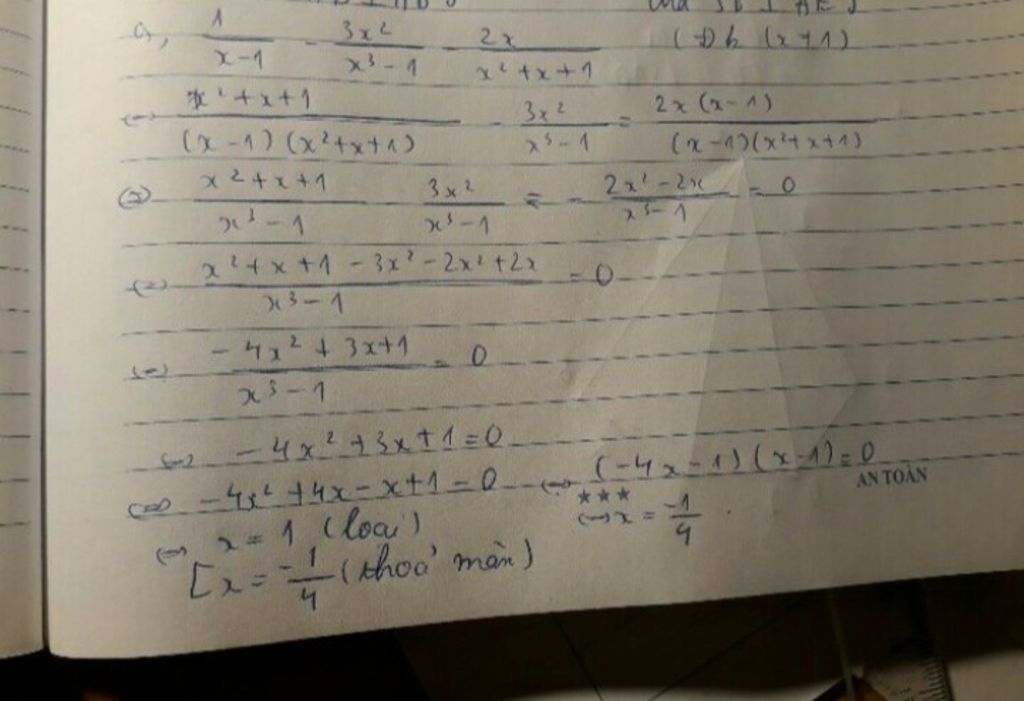 a, \frac{1}{x-1} - \frac{3x^2}{x^3-1} = \frac{2x}{x^2+x+1} (x+1)
\frac{x^2+x+1}{(x-1)(x^2+x+1)} - \frac{3x^2}{x^3-1} = \frac{2x(x-1)}{(x-1)(x^2+x+1)}
\frac{x^2+x+1}{x^3-1} \frac{3x^2}{x^3-1} - \frac{2x^2-2x}{x^3-1} = 0
\frac{x^2+x+1-3x^2-2x^2+2x}{x^3-1} = 0
\frac{-4x^2+3x+1}{x^3-1} = 0
⇔ -4x^2+3x+1=0
⇔ -4x^2+4x-x+1=0 ⇔ (-4x-1)(x-1)=0
AN TOÀN
★★★
⇔ x = \frac{-1}{4}
⇔ x = 1 (loại)
[x = -\frac{1}{4} (thoả mãn)